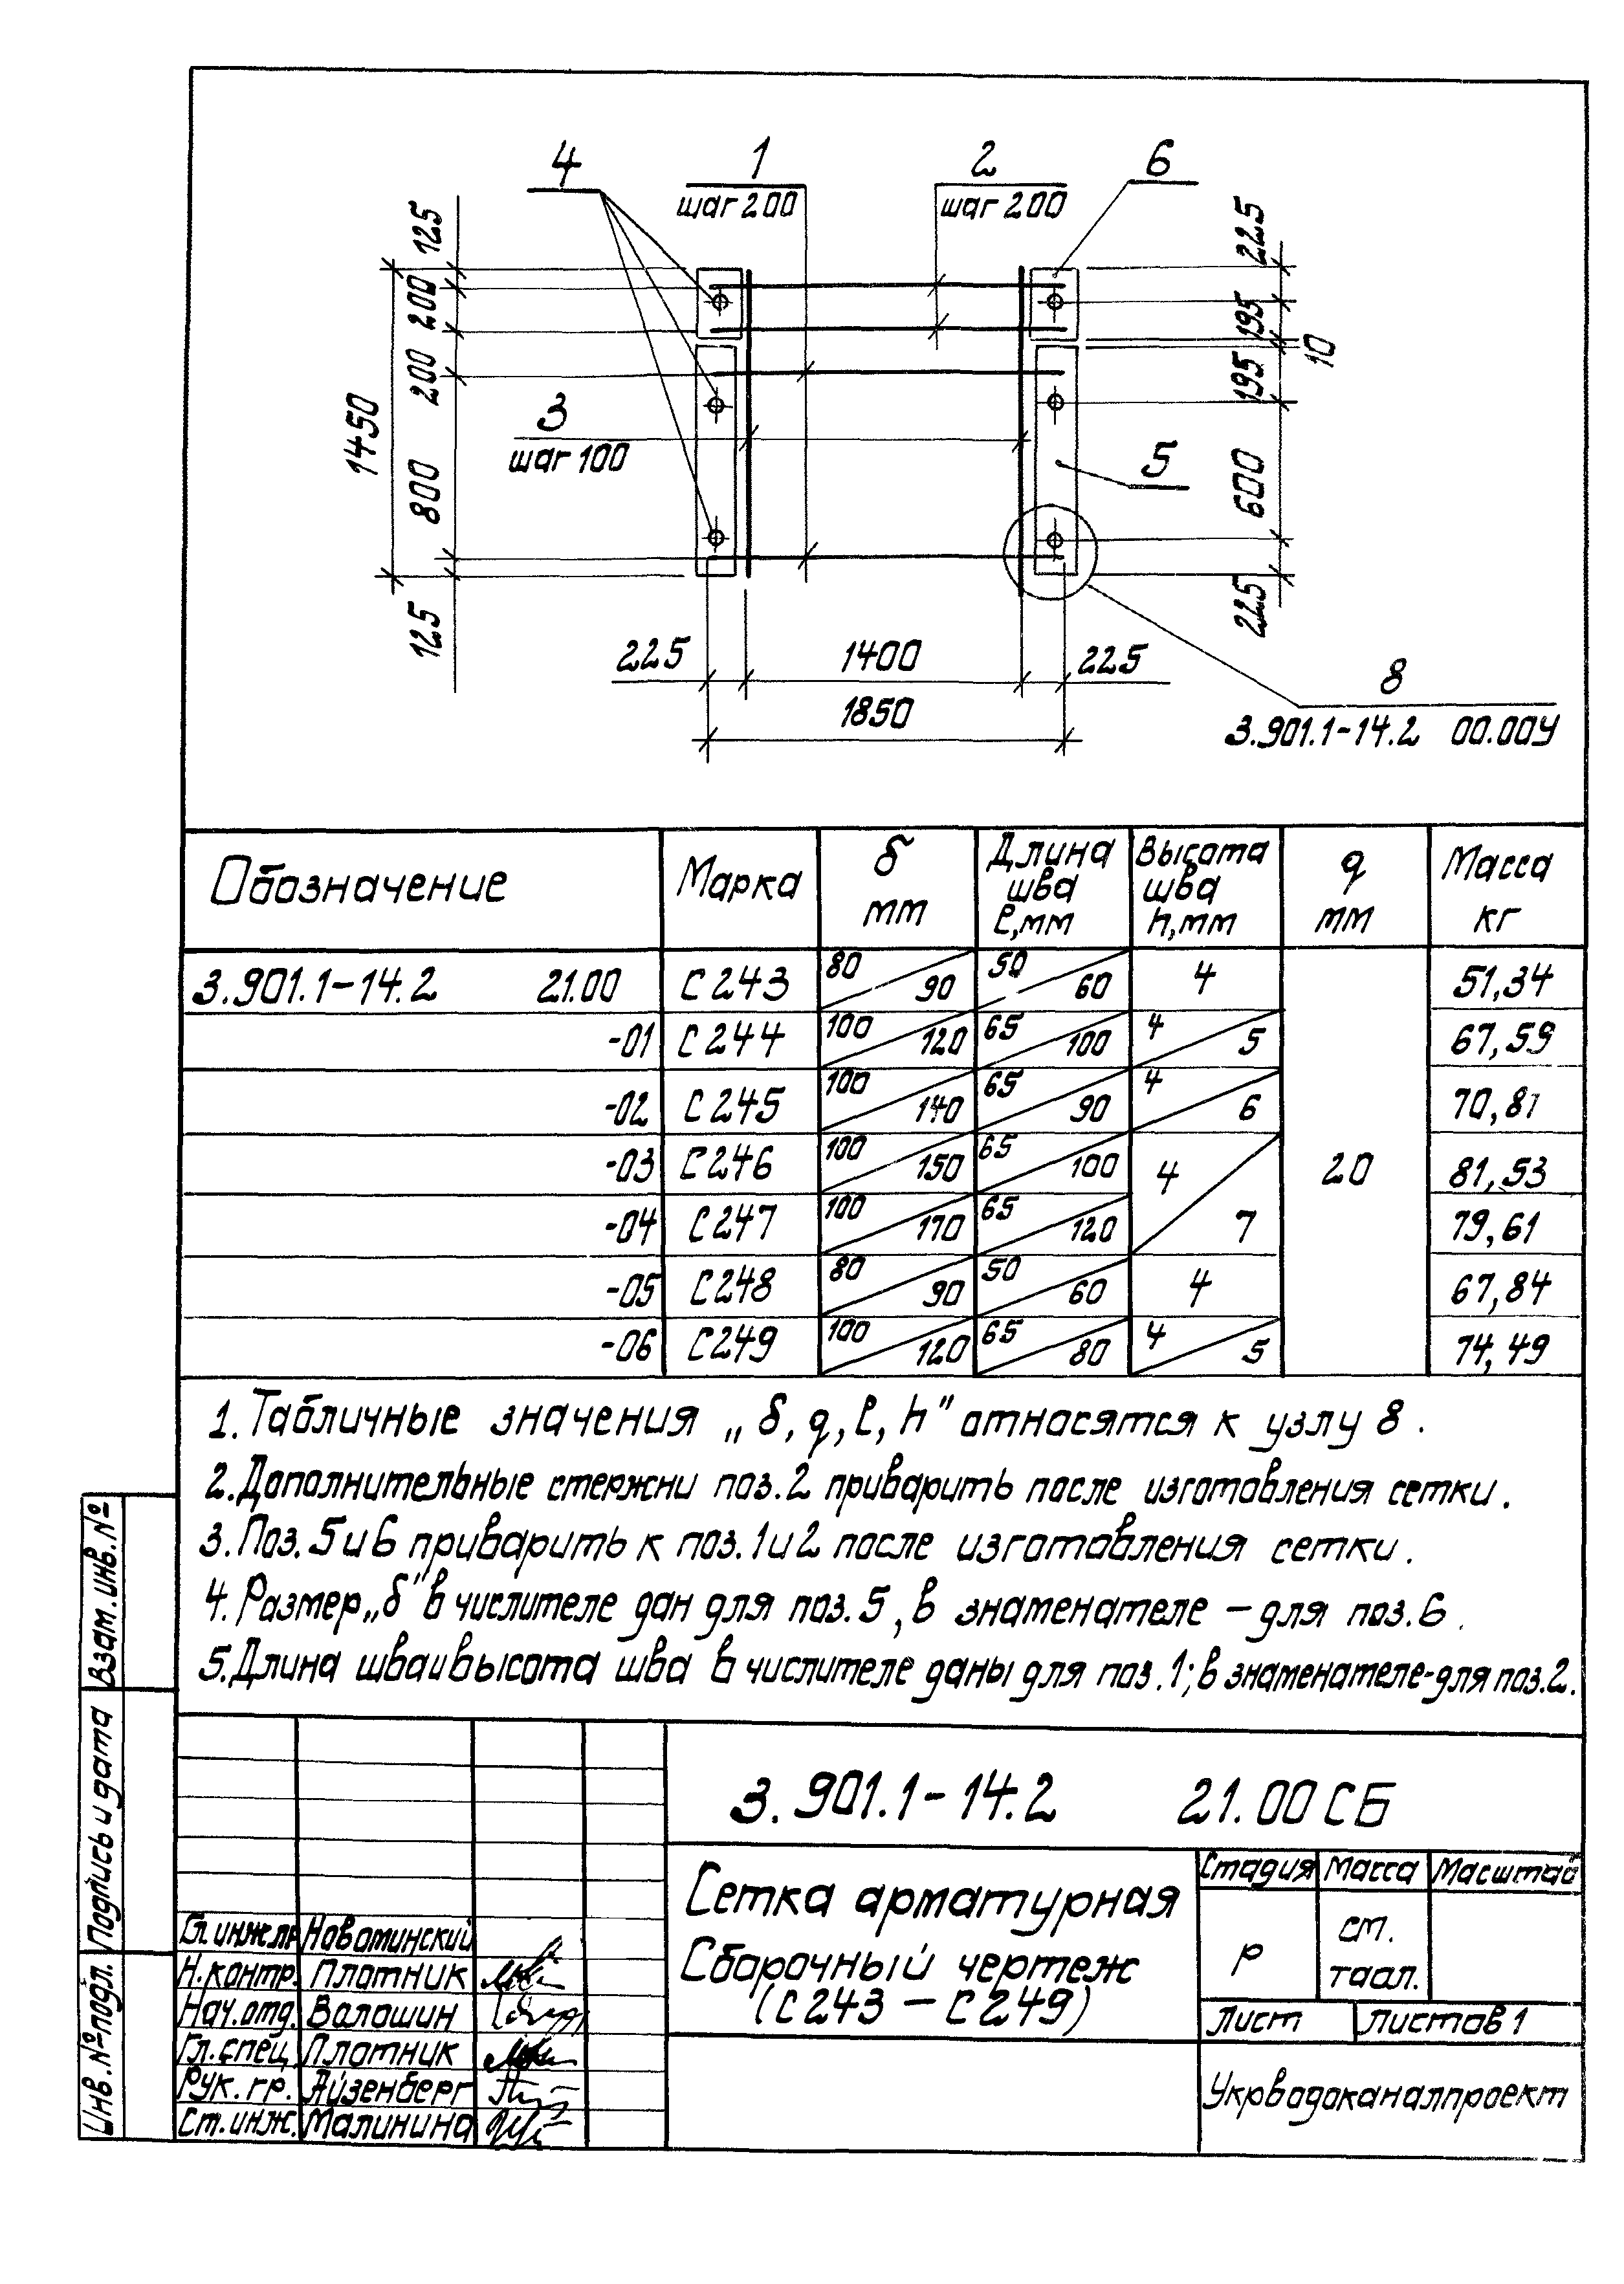 4
1
шаг 200
2
шаг 200
6
125
200
200
1450
800
125
3
шаг 100
225
195
10
195
600
225
5
225
1400
225
1850
8
3.901.1-14.2 00.00У
Обозначение Марка δ мм Длина шва ℓ,мм Высота шва h,мм q мм Масса кг
3.901.1-14.2 21.00 С243 80/90 50/60 4 51,34
-01 С244 100/120 65/100 4/5 67,59
-02 С245 100/140 65/90 4/6 70,81
-03 С246 100/150 65/100 4/7 20 81,53
-04 С247 100/170 65/120 79,61
-05 С248 80/90 50/60 4 67,84
-06 С249 100/120 65/80 4/5 74,49
1. Табличные значения „δ, q, ℓ, h" относятся к узлу 8.
2. Дополнительные стержни поз.2 приварить после изготовления сетки.
3. Поз. 5 и 6 приварить к поз. 1 и 2 после изготовления сетки.
4. Размер „δ" в числителе дан для поз. 5, в знаменателе – для поз. 6.
5. Длина шва и высота шва в числителе даны для поз. 1; в знаменателе-для поз.2.
Взам. инв. №
Подпись и дата
Инв. № подл.
3.901.1-14.2 21.00 СБ
Сетка арматурная
Сборочный чертеж
(С243 – С249)
Стадия Масса Масштаб
Р см. табл.
Лист Листов 1
Укрводоканалпроект
Гл. инж.пр Новоминский
Н.контр. Плотник
Нач.отд. Волошин
Гл.спец. Плотник
Рук. гр. Айзенберг
Ст.инж. Малинина